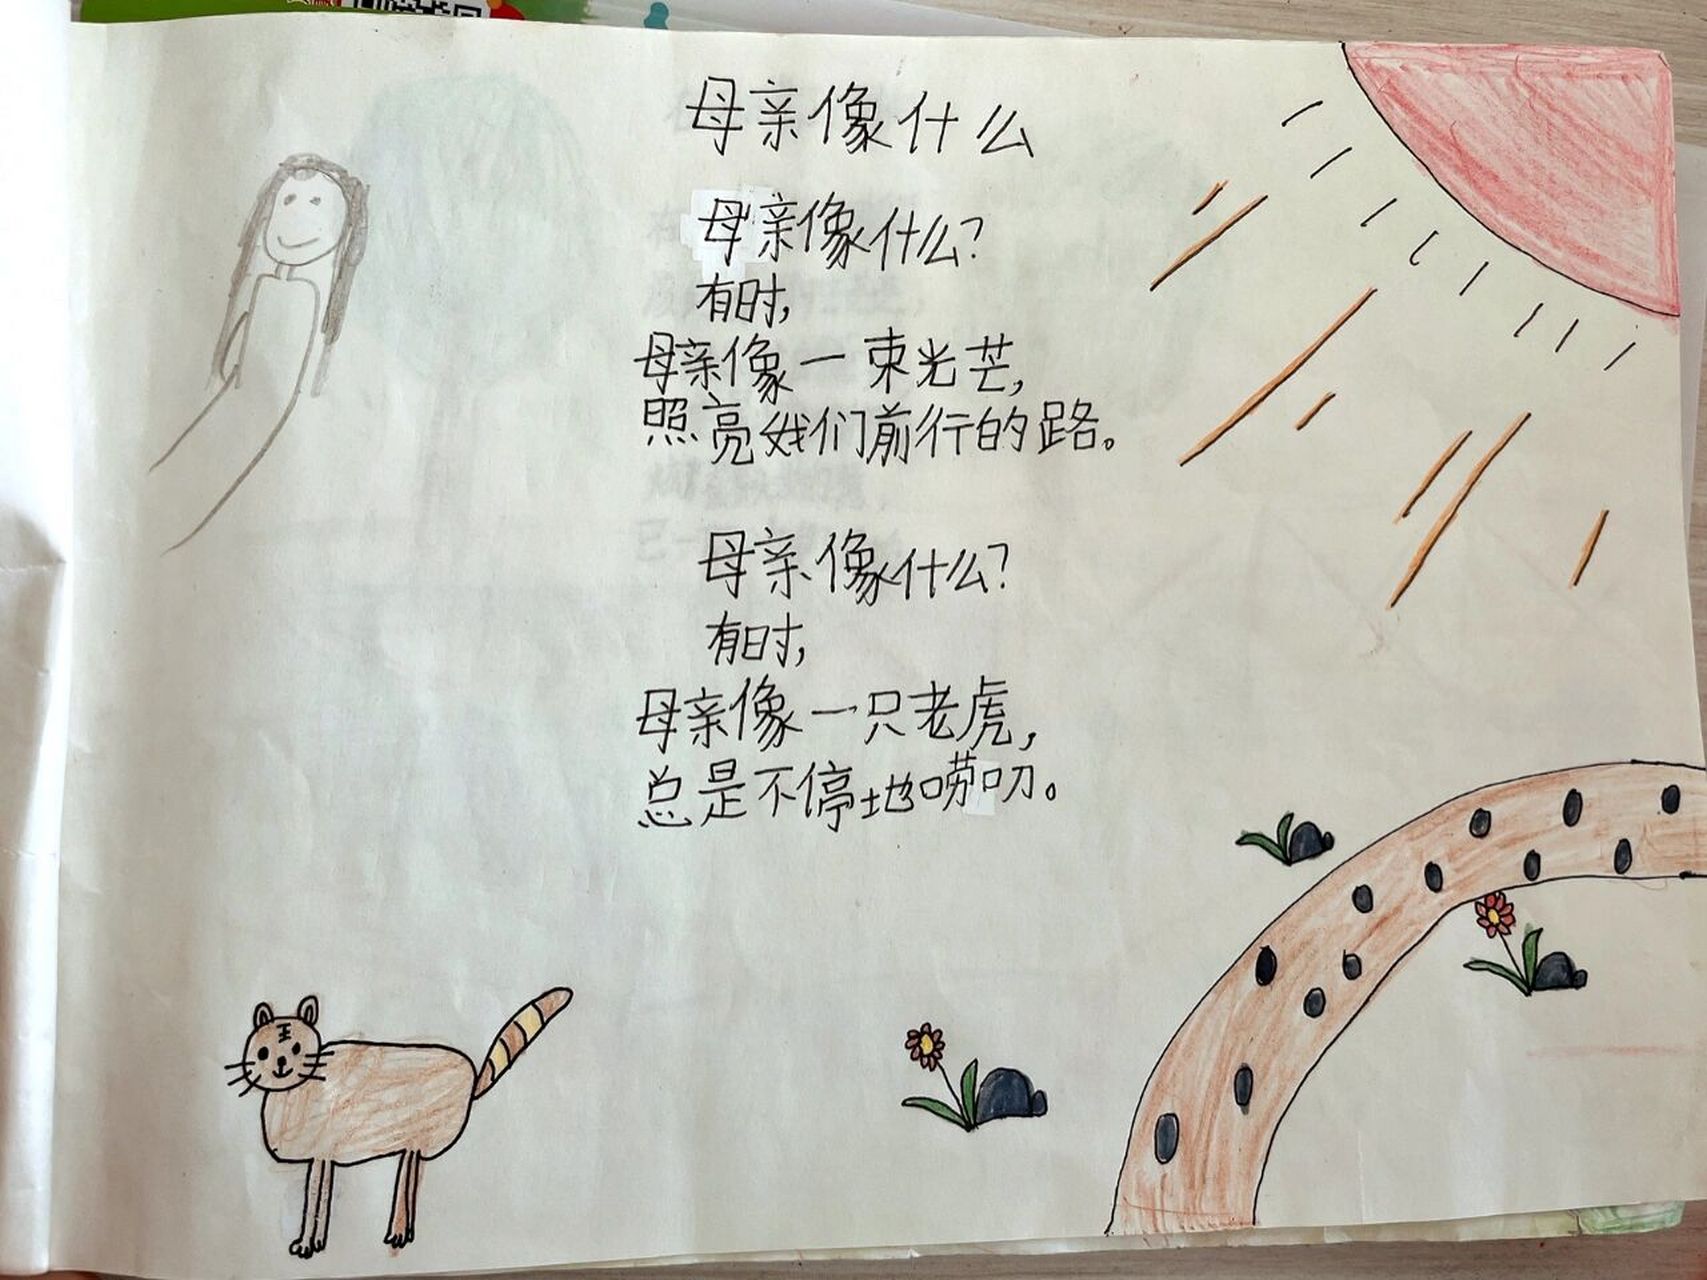 母亲像什么
母亲像什么?
有时,
母亲像一束光芒,
照亮我们前行的路。
母亲像什么?
有时,
母亲像一只老虎,
总是不停地唠叨。
王